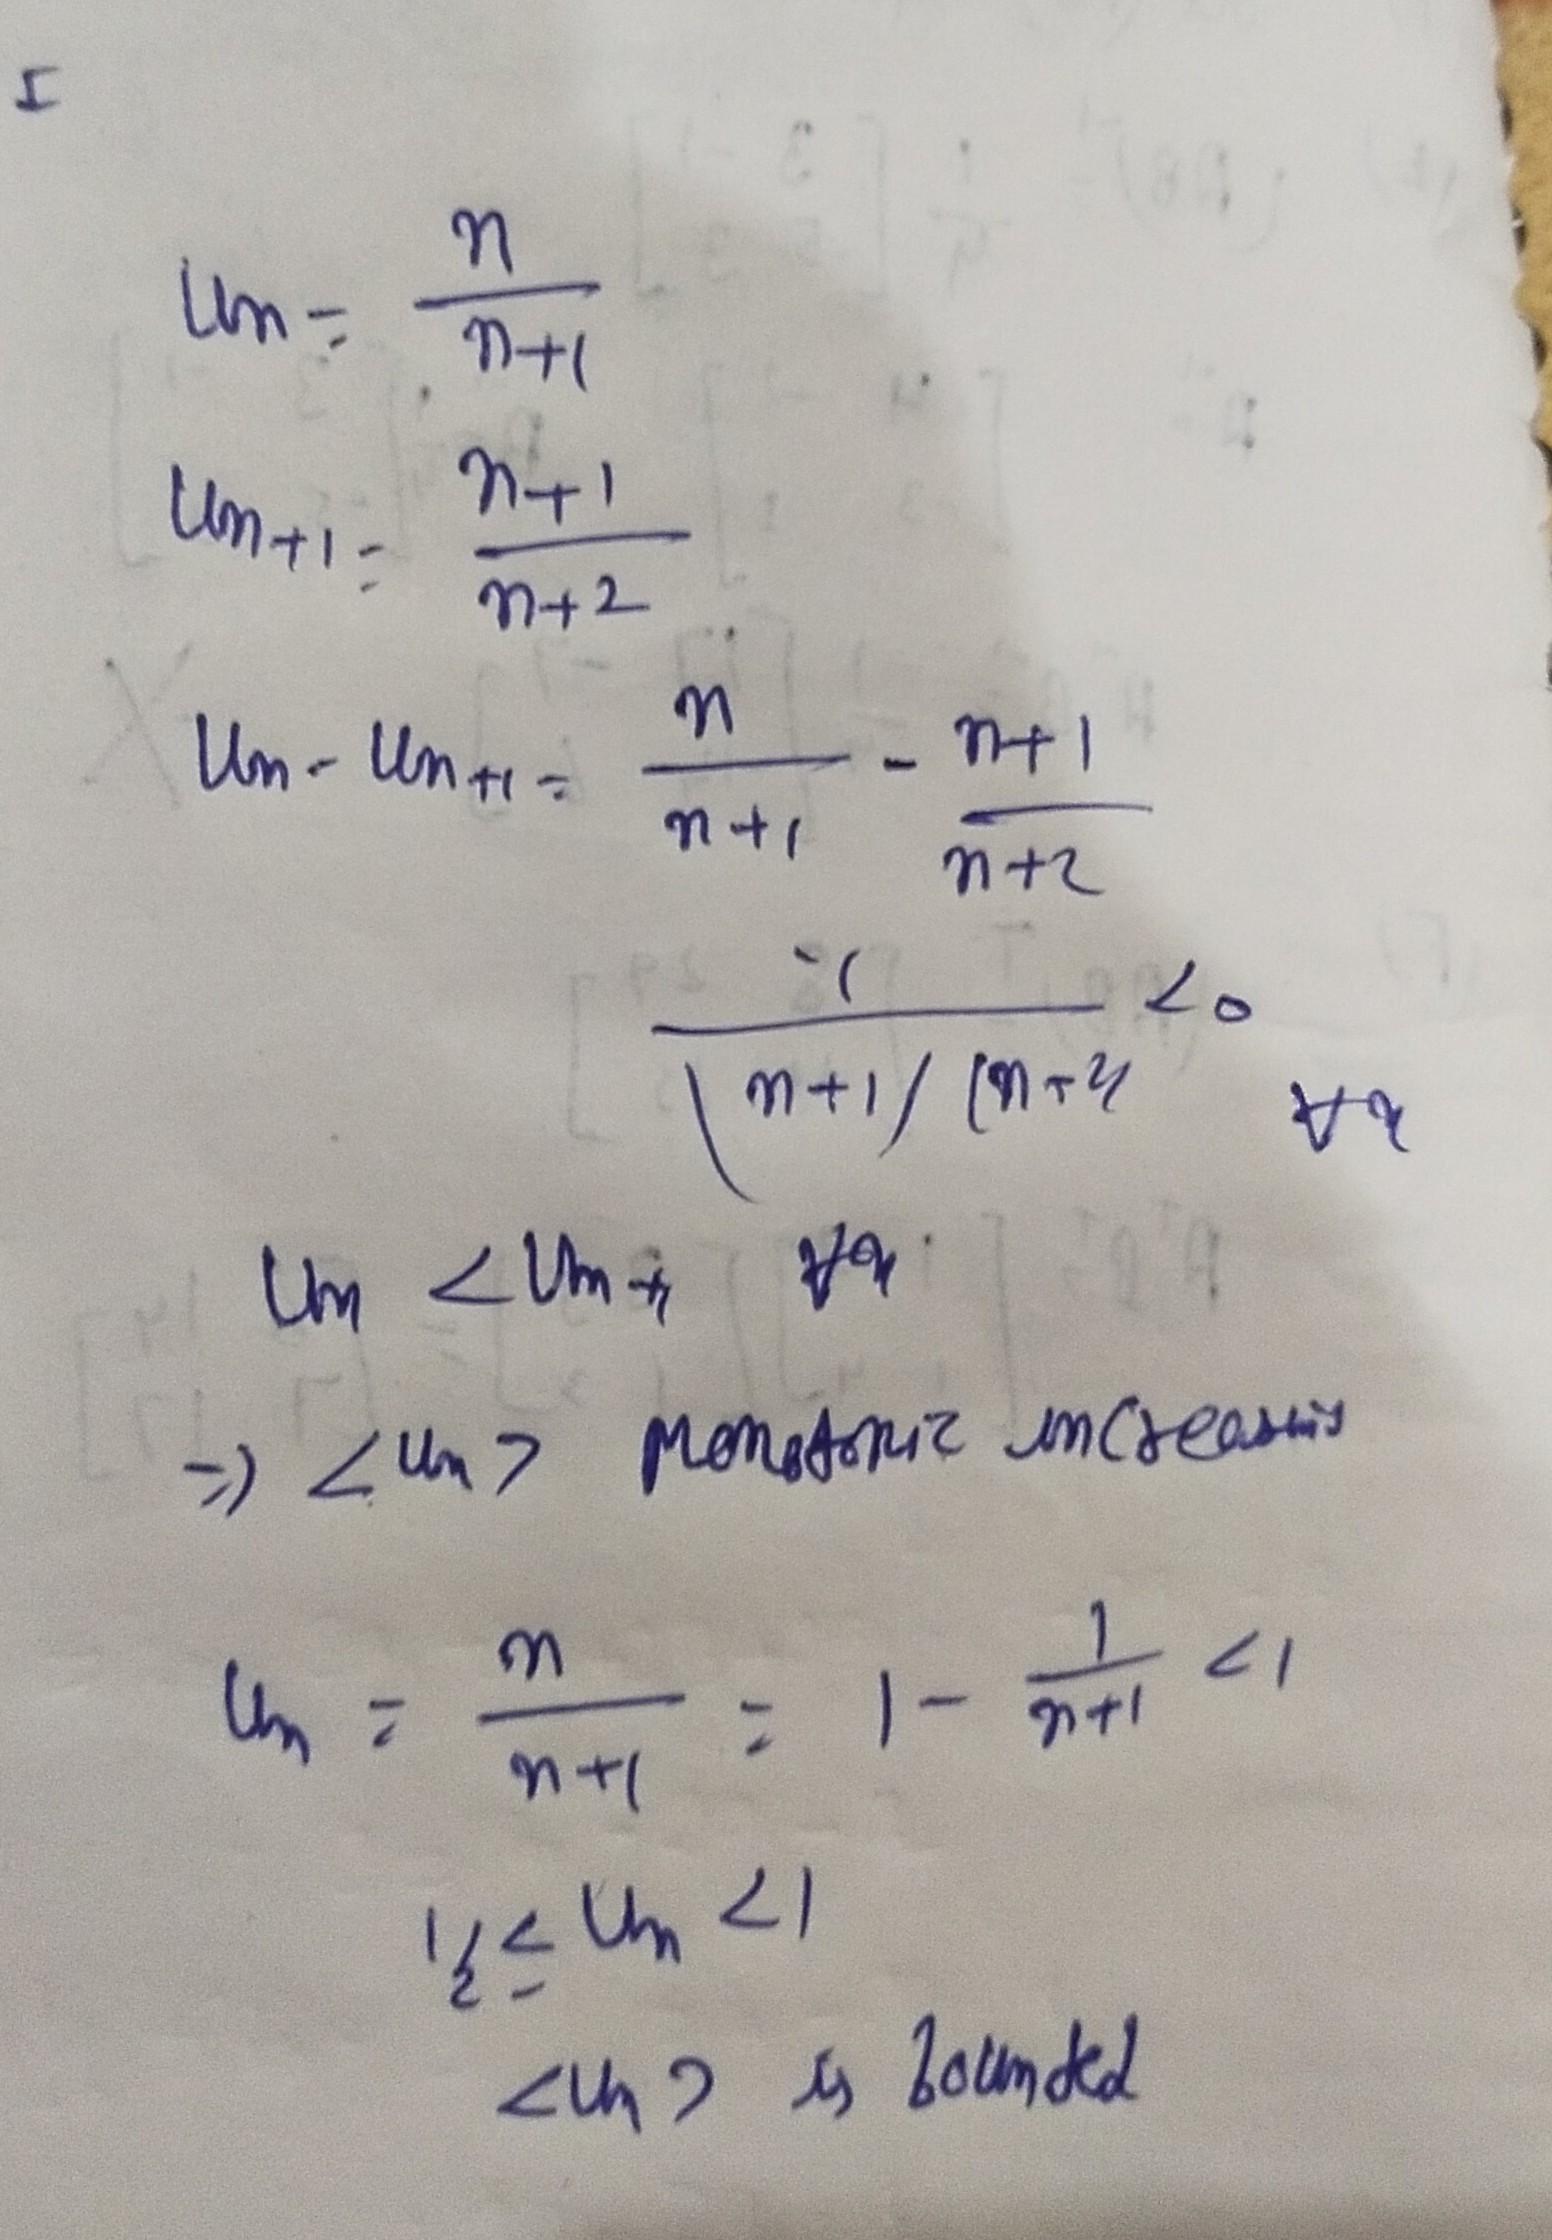 I
Un = n/n+1
Un+1 = n+1/n+2
Un - Un+1 = n/n+1 - n+1/n+2
-1/(n+1)(n+2) <0 ∀n
Un < Un+1 ∀n
=> <Un> Monotonic increasing
Un = n/n+1 = 1 - 1/n+1 <1
1/2 ≤ Un <1
<Un> is bounded